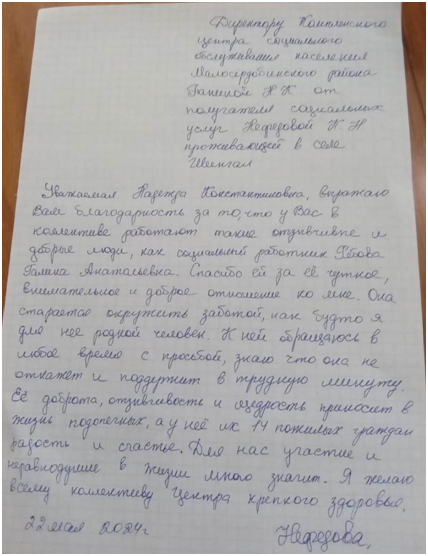 Директору Комплексного
центра социального
обслуживания населения
Малосердобинского района
Ганиной Н К от
получателя социальных
услуг Нефедовой К. Н
проживающей в селе
Шингал
Уважаемая Надежда Константиновна, выражаю
Вам благодарность за то, что у Вас в
коллективе работают такие отзывчивые и
добрые люди, как социальный работник
Галина Анатольевна. Спасибо ей за её чуткое,
внимательное и доброе отношение ко мне. Она
старается окружить заботой, как будто я
для нее родной человек. К ней обращаюсь в
любое время с просьбой, знаю что она не
откажет и поддержит в трудную минуту.
Её доброта, отзывчивость и щедрость приносит в
жизнь подопечных, а у неё их 14 пожилых граждан
радость и счастье. Для нас участие и
неравнодушие в жизни много значит. Я желаю
всему коллективу Центра крепкого здоровья.
22 мая 2024г Нефедова,